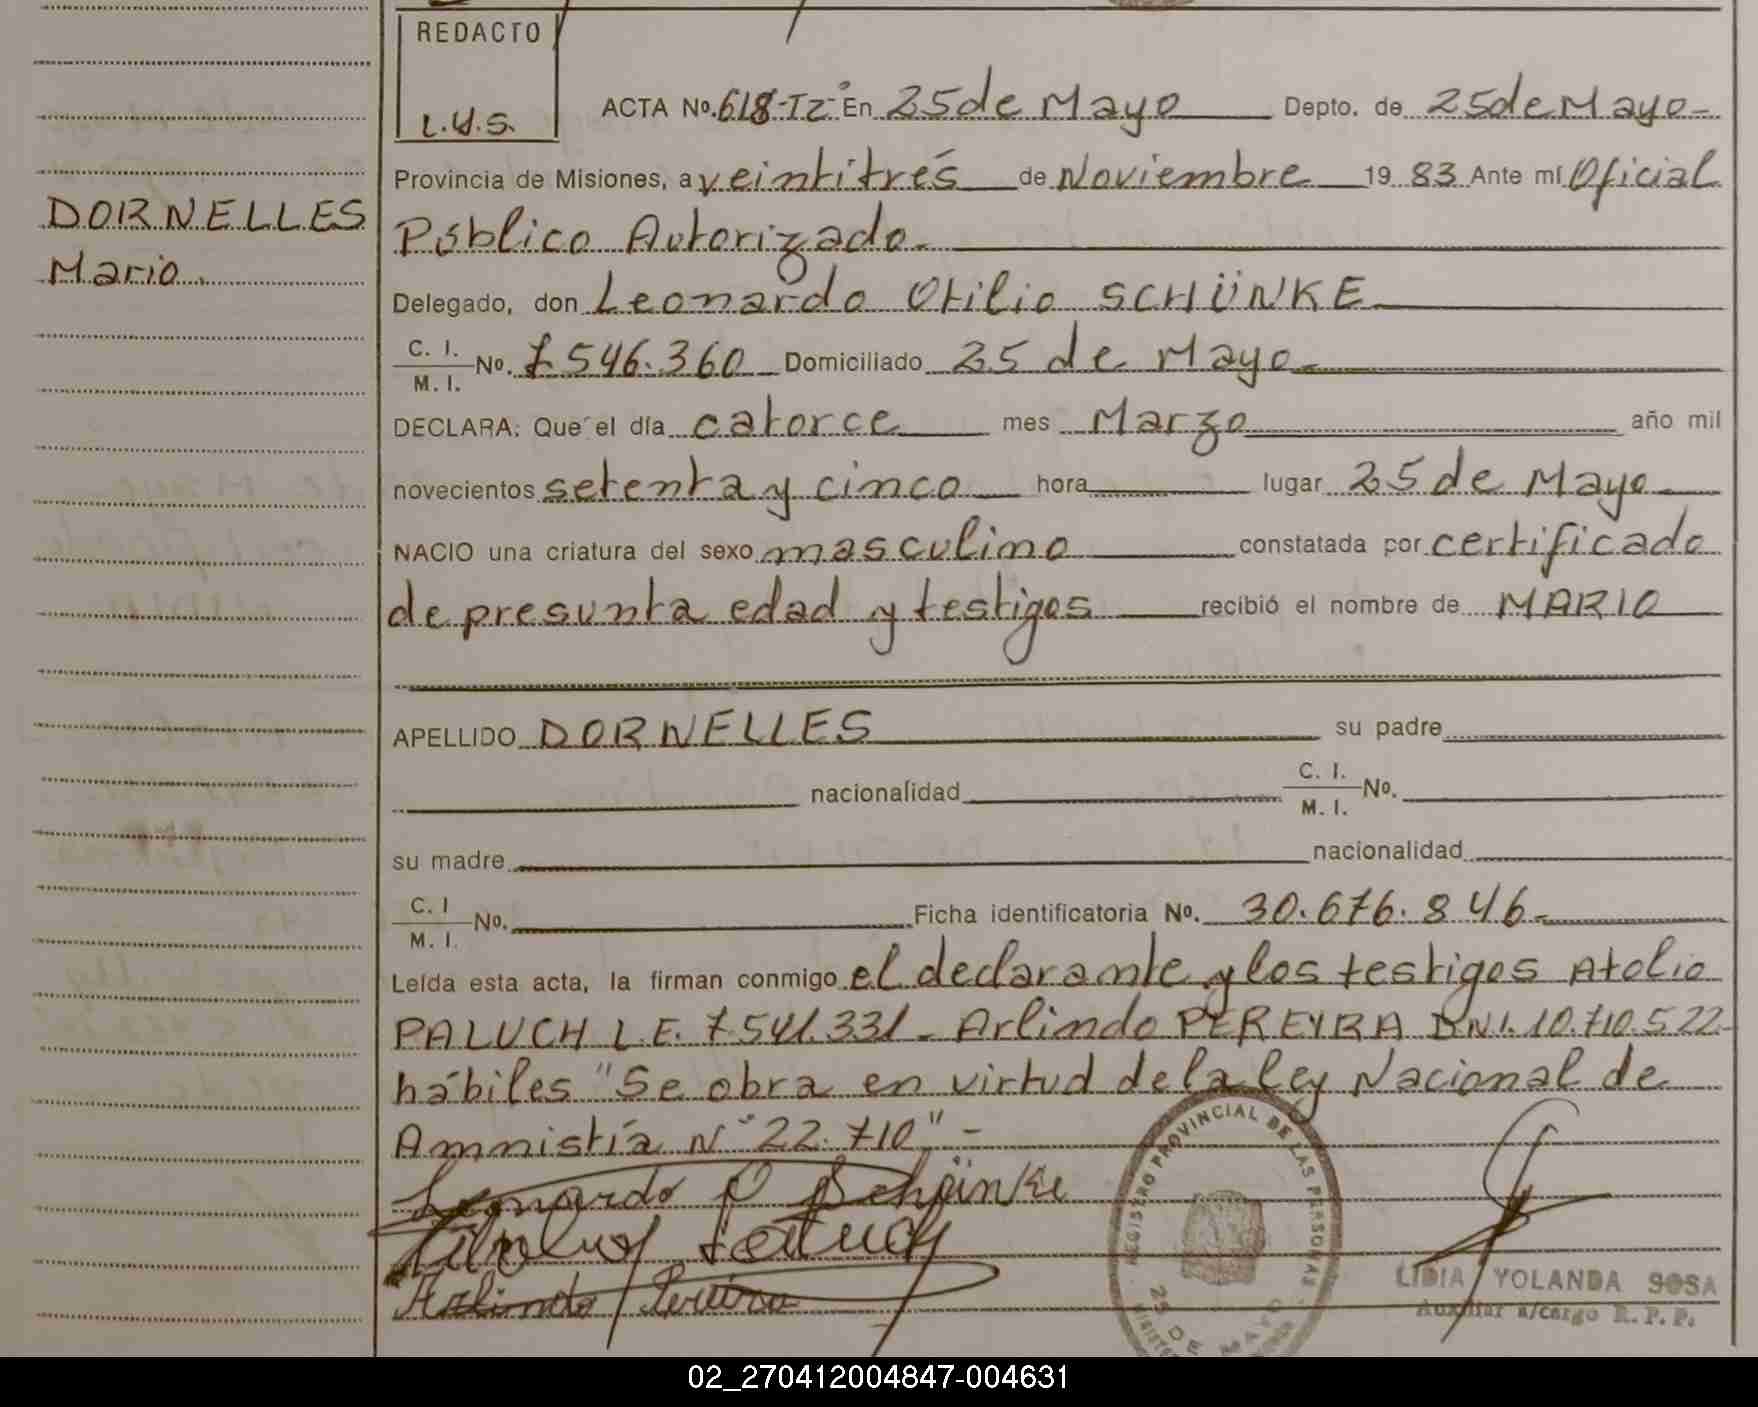 REDACTO
L.Y.S.
ACTA No. 618-Tº2º En 25 de Mayo Depto. de 25 de Mayo-
Provincia de Misiones, a veintitrés de Noviembre 19 83 Ante mí Oficial
DORNELLES
Público Autorizado.
Mario.
Delegado, don Leonardo Otilio SCHÜNKE
C. I.
M. I. No. 7.546.360 Domiciliado 25 de Mayo.
DECLARA: Que el día catorce mes Marzo año mil
novecientos setenta y cinco hora lugar 25 de Mayo
NACIO una criatura del sexo masculino constatada por certificado
de presunta edad y testigos recibió el nombre de MARIO
APELLIDO DORNELLES su padre
nacionalidad C. I.
M. I. No.
su madre nacionalidad
C. I
M. I. No. Ficha identificatoria No. 30.676.846.
Leída esta acta, la firman conmigo el declarante y los testigos Atolio
PALUCH L.E. 7.541.331- Arlindo PEREYRA DNI. 10.710.522-
hábiles "Se obra en virtud de la ley Nacional de
Amnistía Nº 22.710" -
Leonardo O Schünke
Arlindo Pereira
REGISTRO PROVINCIAL DE LAS PERSONAS
25 DE MAYO
LIDIA YOLANDA SOSA
Auxiliar a/cargo R. P. P.
02_270412004847-004631